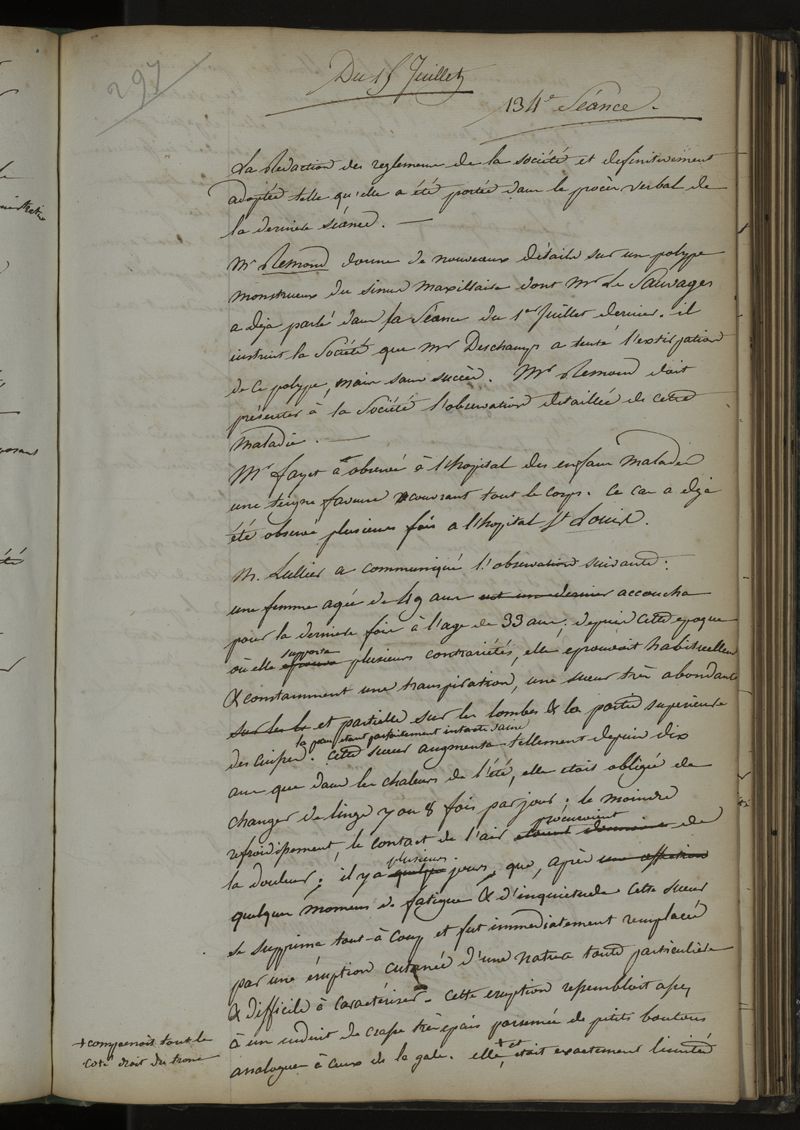 297
Du 15 Juillet
134e Séance.
La Redaction des reglemens de la société est definitivement
adoptée telle qu'elle a été portée dans le procès verbal de
la derniere séance.
Mr Remond donne de nouveaux détails sur un polype
monstrueux du sinus maxillaire dont Mr Le Sauvages
a deja parlé dans la Séance du 1er Juillet dernier. il
instruit la Société que Mr Deschamps a tenté l'extirpation
de ce polype, mais sans succès. Mr Remond doit
présenter à la Société l'observation détaillée de cette
maladie.
Mr Fayet a observé à l'hopital des enfans malades
une teigne faveuse couvrant tout le corps. Ce cas a deja
été observé plusieurs fois a l'hopital St Louis.
M. Lullier a communiqué l'observation suivante:
une femme agée de 49 ans est un dernier accoucha
pour la derniere fois à l'age de 33 ans; depuis cette epoque
supporta
où elle eprouva plusieurs contrariétés, elle eprouvoit habituellemt
& constamment une transpiration, une sueur très abondante
sur les lo et partielle sur les lombes & la partie superieure
la peau etant parfaitement intacte saine
des cuisses. Cette sueur augmenta tellement depuis dix
ans que dans les chaleurs de l'été, elle etait obligée de
changer de linge 7 ou 8 fois par jour; le moindre
procuroient
refroidissement, le contact de l'air de
plusieurs
la douleur; il y a quelques jours, que, après une affection
quelques momens de fatigue & d'inquietude cette sueur
se supprima tout-à-coup et fut immediatement remplacée
par une éruption cutanée d'une nature toute particuliere
& difficile à caractériser. Cette eruption ressembloit assez
à un enduit de crasse très epais parsemée de petits boutons
analogues à ceux de la gale. elle + et était exactement limitée
+ comprenoit tout le
coté droit du tronc